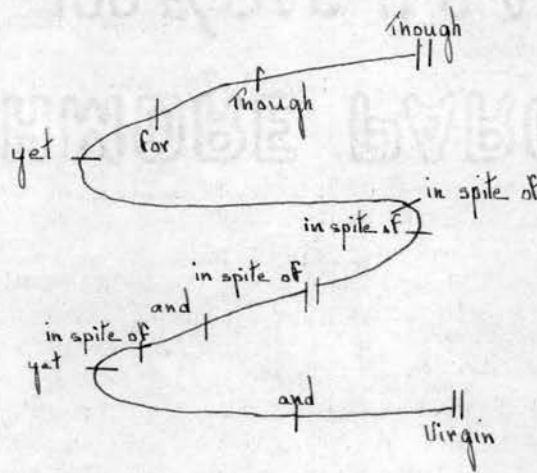 Though
Though
for
yet
in spite of
in spite of
in spite of
and
in spite of
yet
and
Virgin